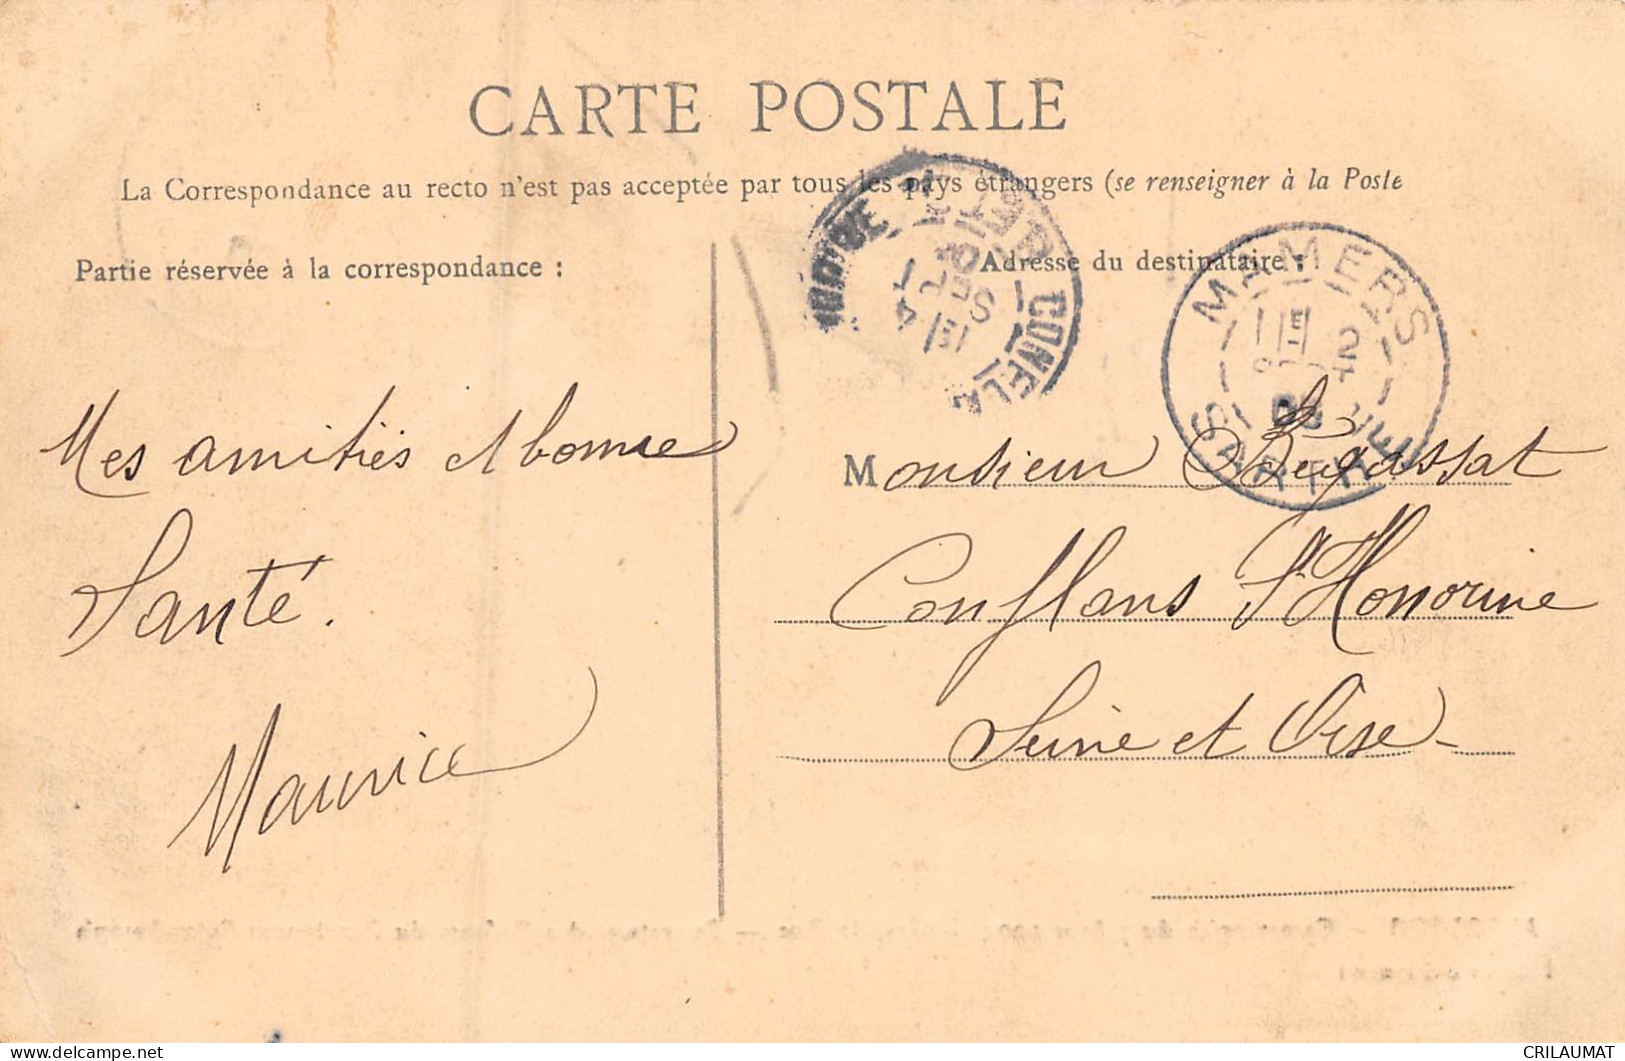 CARTE POSTALE
La Correspondance au recto n'est pas acceptée par tous les pays étrangers (se renseigner à la Poste
Partie réservée à la correspondance :
Adresse du destinataire :
MAMERS
SARTHE
2
Mes amitiés et bonne
Santé.
Maurice
Monsieur Bugassat
Conflans St Honorine
Seine et Oise
CRILAUMAT